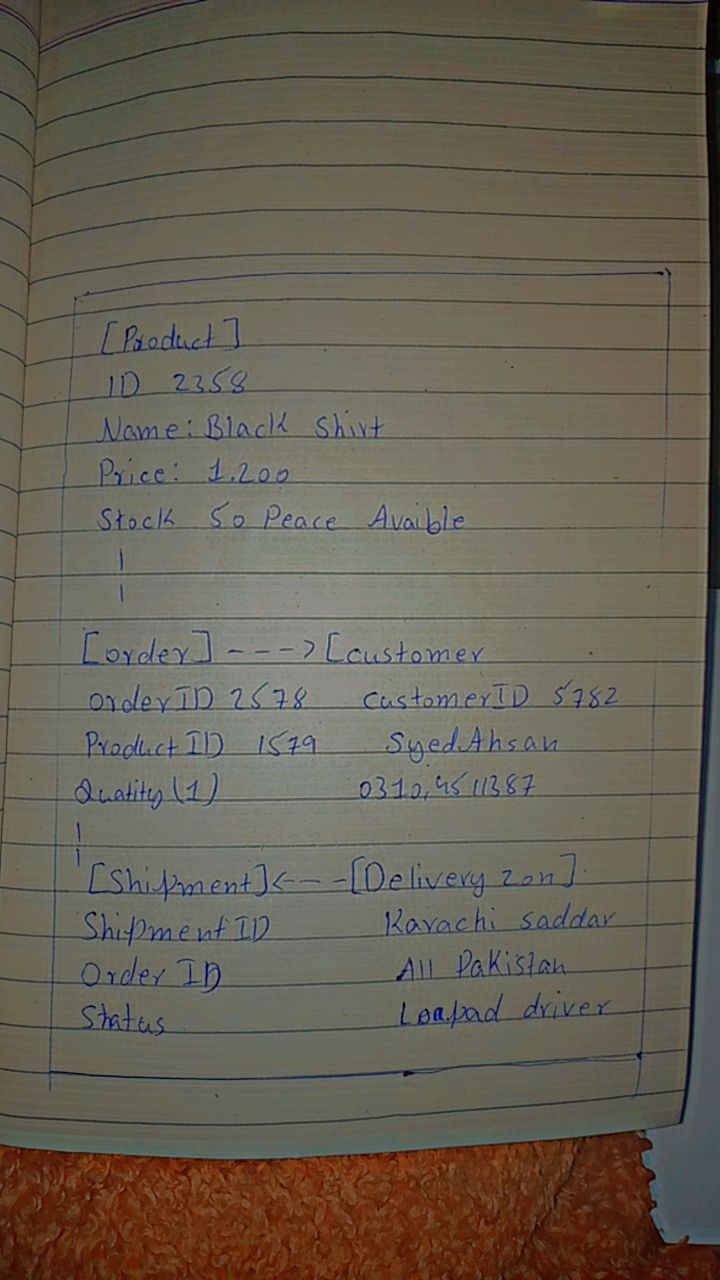 [Product]
ID 2358
Name: Black Shirt
Price: 1.200
Stock 50 Peace Avaible
[order] ---> [customer
order ID 2578 customer ID 5782
Product ID 1579 Syed Ahsan
Quatity (1) 0310,4511387
[Shipment] <--- [Delivery zon]
Shipment ID Karachi saddar
Order ID All Pakistan
Status driver